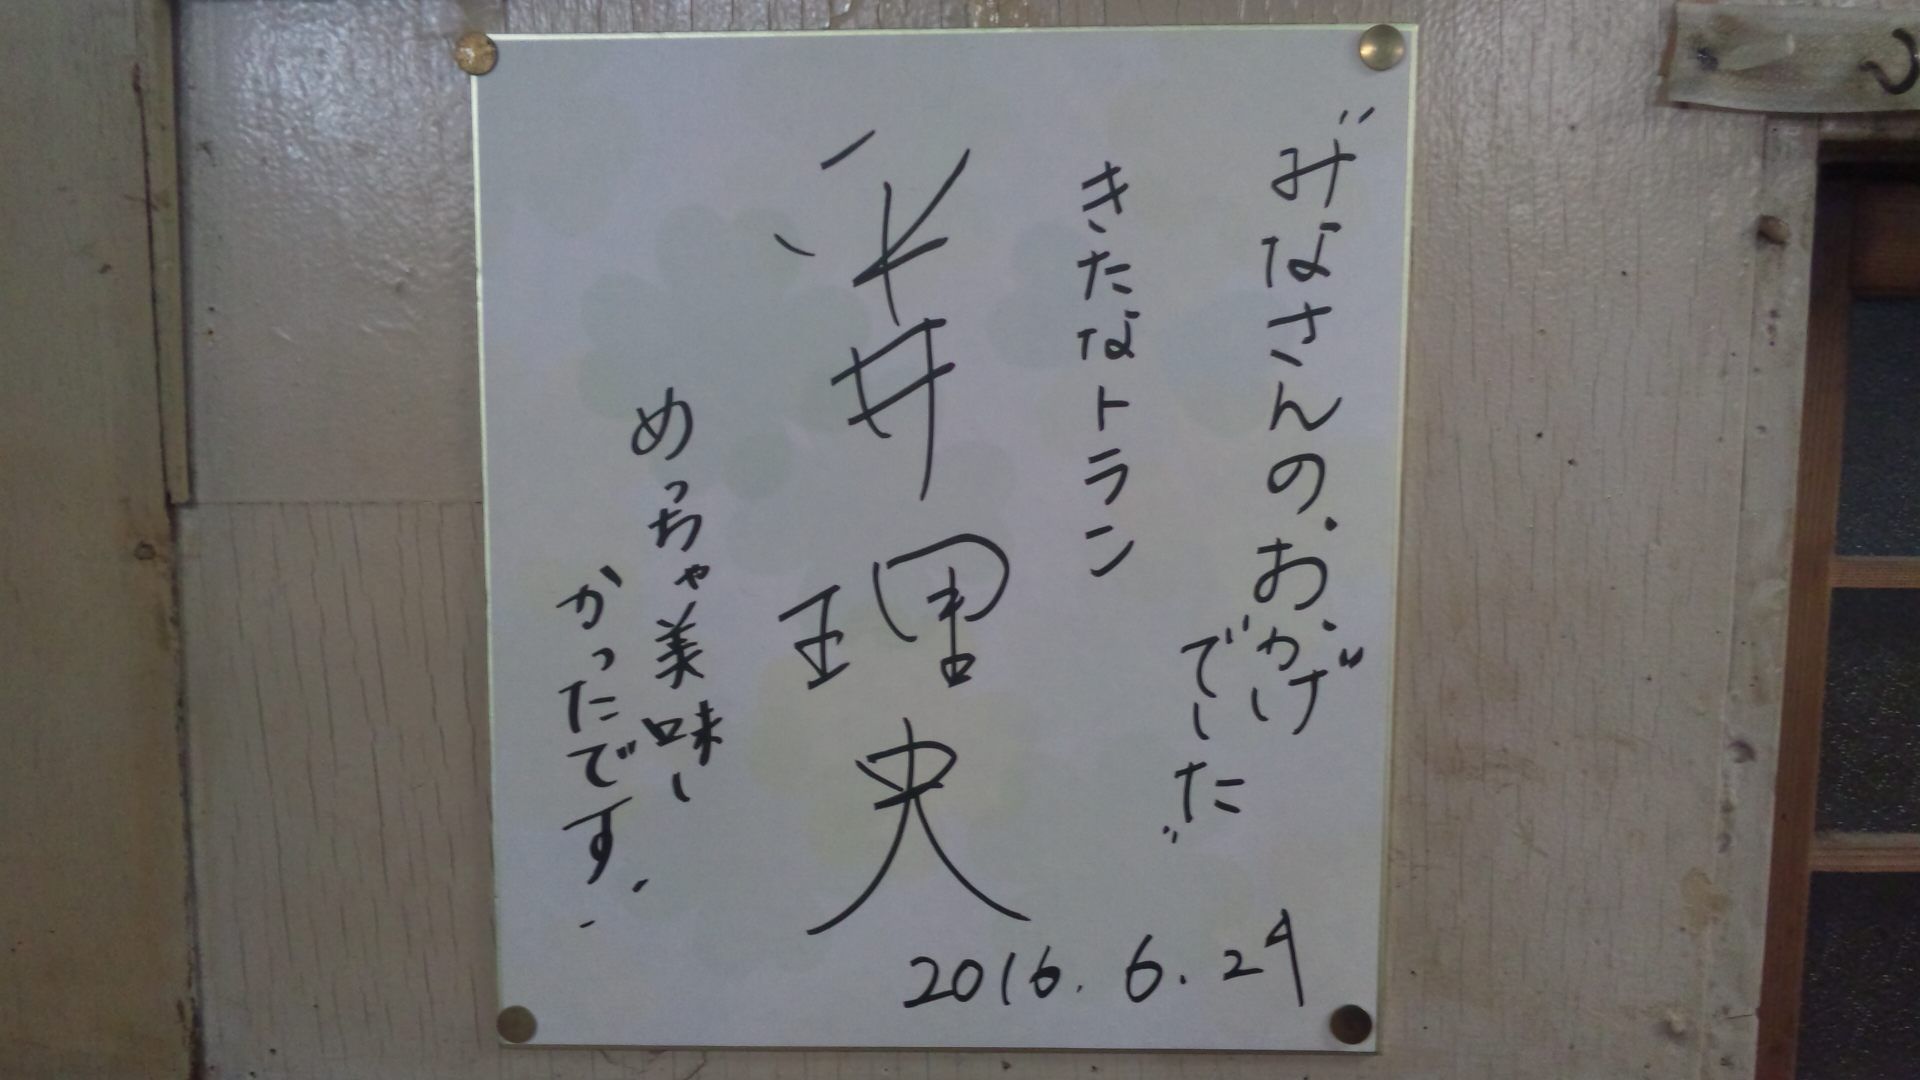 "みなさんのおかげ
でした"
きたなトラン
平井理央
めっちゃ美味し
かったです.
2016.6.29